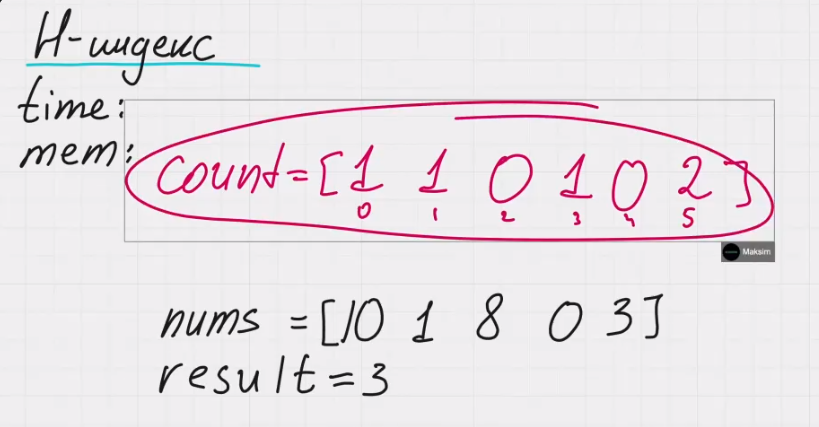 H-индекс
time:
mem:
count=[1 1 0 1 0 2]
0 1 2 3 4 5
Maksim
nums =[10 1 8 0 3]
result=3